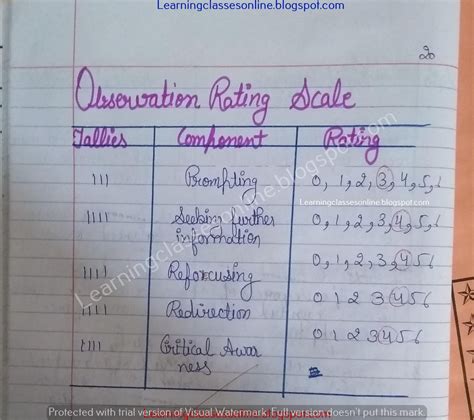 Learningclassesonline.blogspot.com
20
Observation Rating Scale
Tallies Component Rating
III Prompting 0, 1, 2, 3, 4, 5, 6
Learningclassesonline.blogspot.com
IIII Seeking Further 0, 1, 2, 3, 4, 5, 6
information
IIII Refocusing 0, 1, 2, 3, 4 5 6
IIII Redirection 0 1 2 3 4 5 6
IIII Critical Awar 0 1 2 3 4 5 6
ness
Learningclassesonline.blogspot.com
Protected with trial version of Visual Watermark. Full version doesn't put this mark.